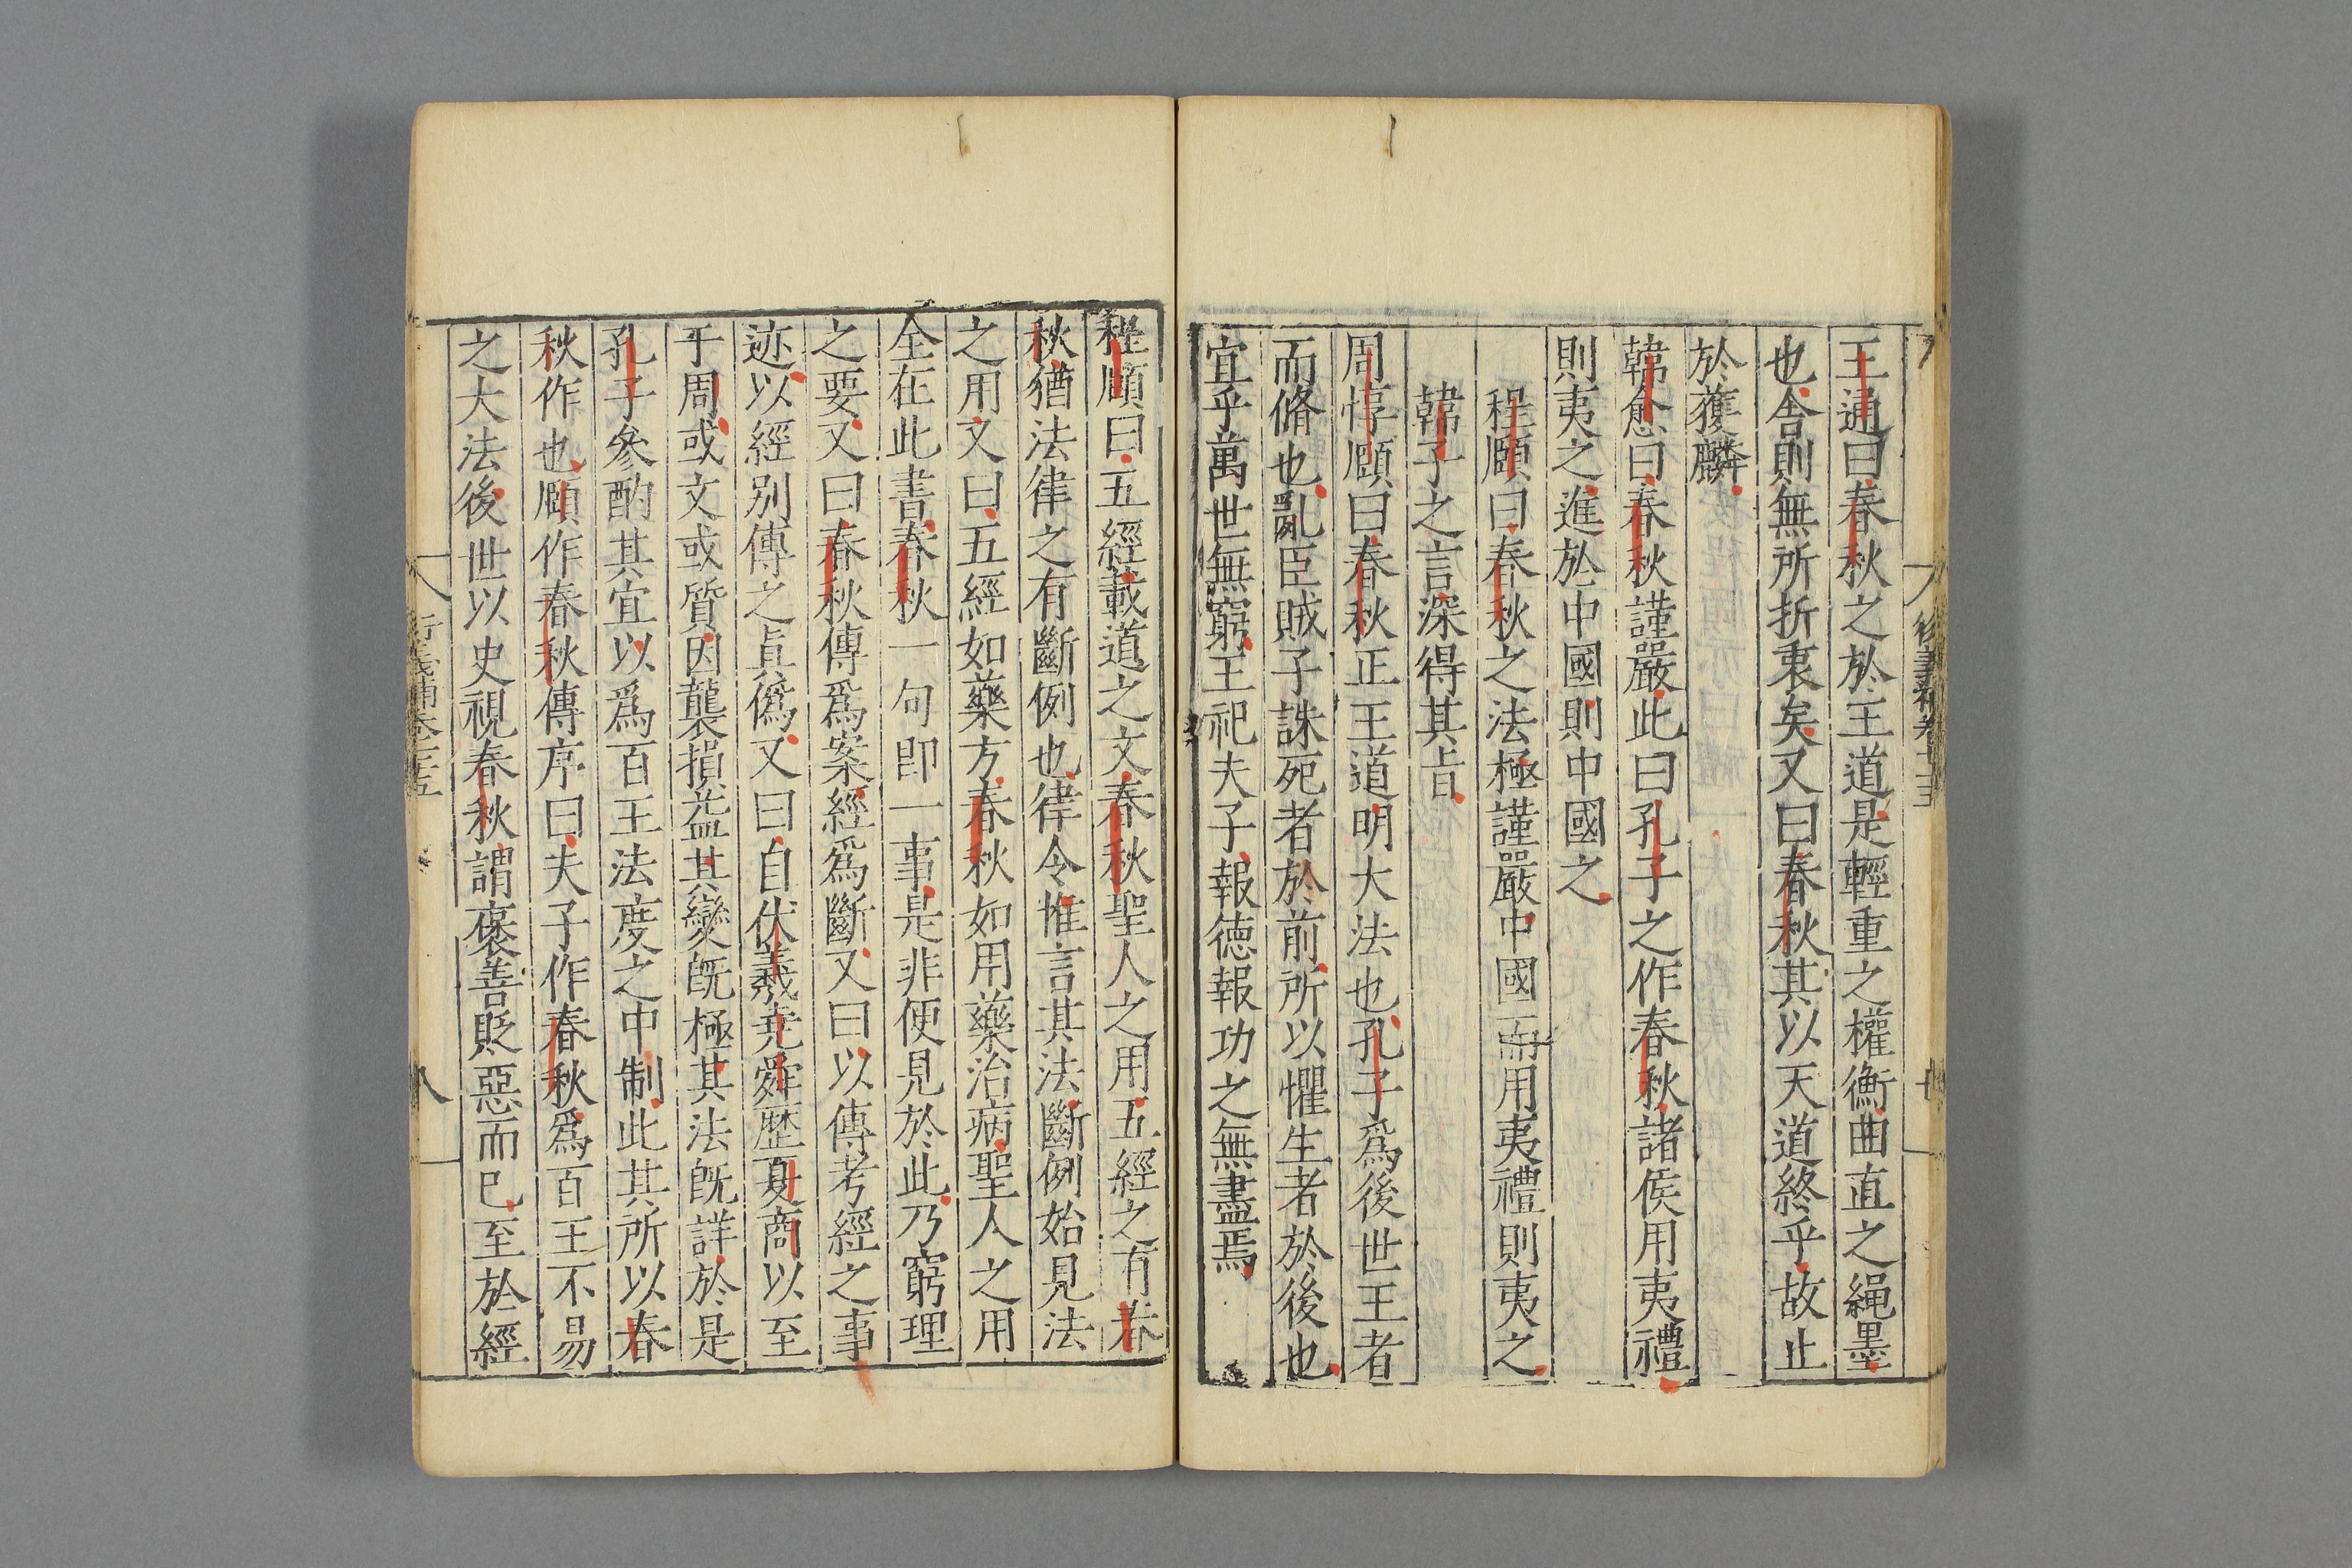 王通曰春秋之於王道是輕重之權衡曲直之繩墨
也舎則無所折衷矣又曰春秋其以天道終乎故止
於獲麟
韓愈曰春秋謹嚴此曰孔子之作春秋諸侯用夷禮
則夷之進於中國則中國之
程頤曰春秋之法極謹嚴中國而用夷禮則夷之
韓子之言深得其旨
周惇頤曰春秋正王道明大法也孔子爲後世王者
而脩也亂臣賊子誅死者於前所以懼生者於後也
宜乎萬世無窮王祀夫子報德報功之無盡焉
程頤曰五經載道之文春秋聖人之用五經之有春
秋猶法律之有斷例也律令惟言其法斷例始見法
之用又曰五經如藥方春秋如用藥治病聖人之用
全在此書春秋一句即一事是非便見於此乃窮理
之要又曰春秋傳爲案經爲斷又曰以傳考經之事
迹以經別傳之眞僞又曰自伏羲堯舜歷夏商以至
于周或文或質因襲損益其變旣極其法旣詳於是
孔子參酌其宜以爲百王法度之中制此其所以春
秋作也頤作春秋傳序曰夫子作春秋爲百王不易
之大法後世以史視春秋謂褒善貶惡而已至於經